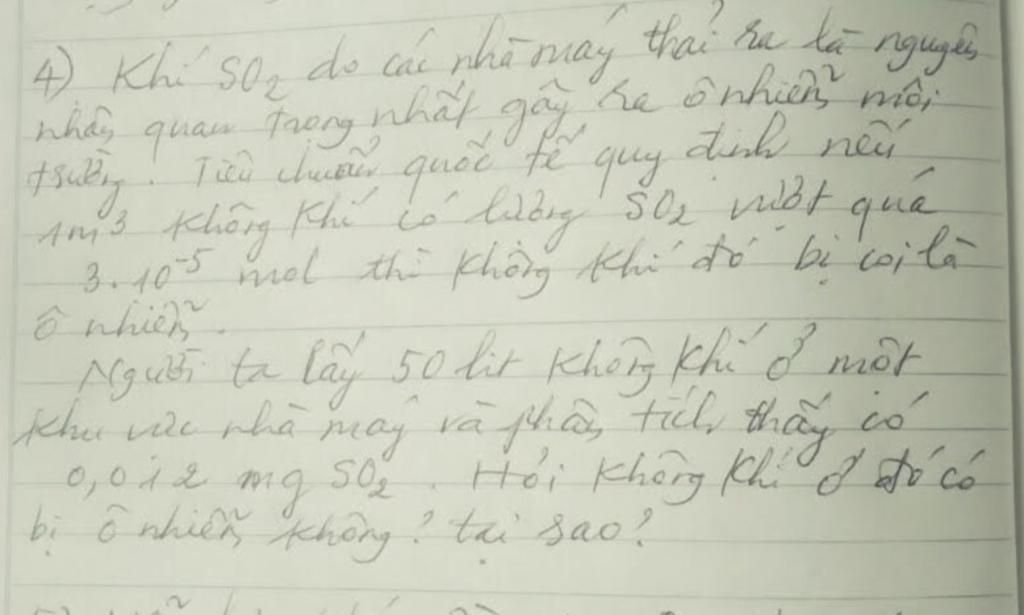 4) Khí SO2 do các nhà máy thải ra là nguyên
nhân quan trọng nhất gây ra ô nhiễm môi
trường. Tiêu chuẩn quốc tế quy định nếu
1m³ không khí có lượng SO2 vượt quá
3.10⁻⁵ mol thì không khí đó bị coi là
ô nhiễm.
Người ta lấy 50 lit không khí ở một
khu vực nhà máy và phân tích thấy có
0,012 mg SO2. Hỏi không khí ở đó có
bị ô nhiễm không? tại sao?